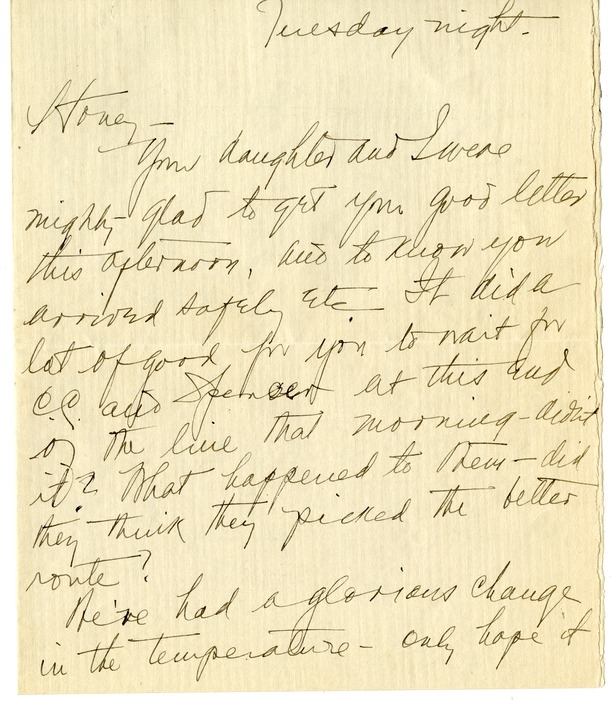 Tuesday night.
Honey —
Your daughter and I were
mighty glad to get your good letter
this afternoon, and to know you
arrived safely etc It did a
lot of good for you to wait for
C.C. and Spencer at this end
of the line that morning - didn't
it? What happened to them - did
they think they picked the better
route?
We've had a glorious change
in the temperature - only hope it